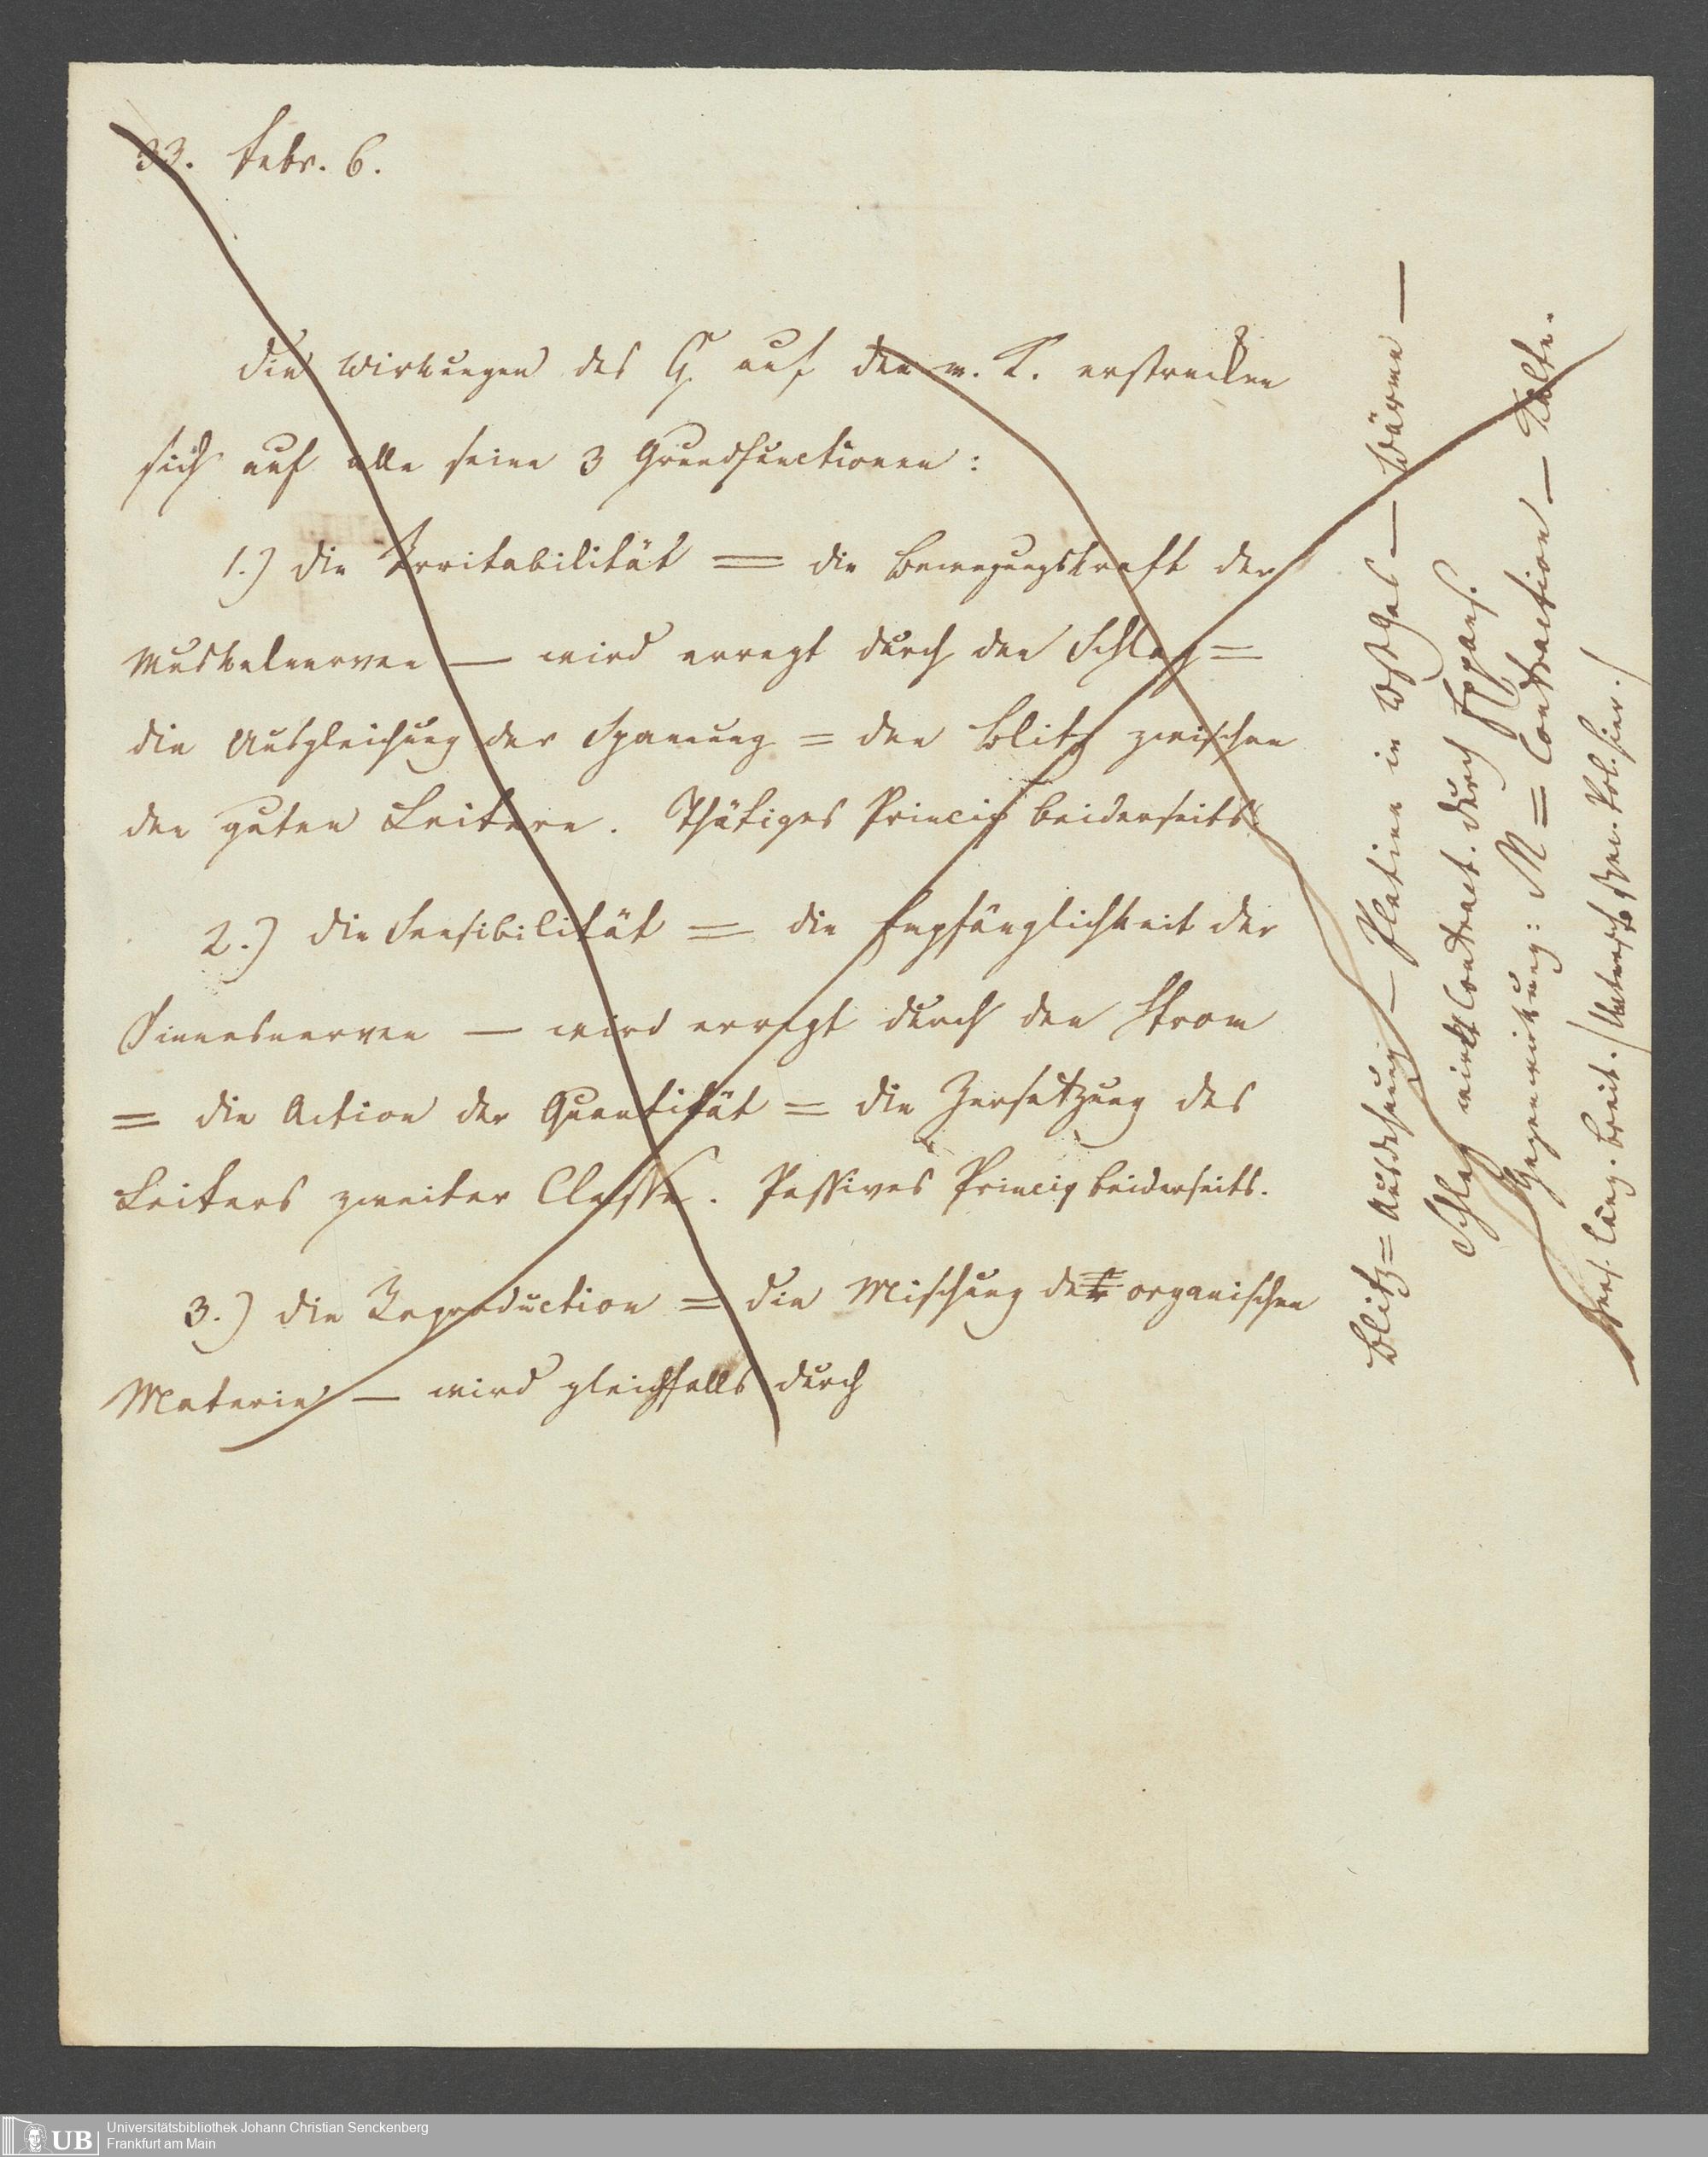 33. Febr. 6.
Die Wirkungen des G auf den m. K. erstrecken
sich auf alle seine 3 Grundfunctionen:
1.) die Irritabilität = die Bewegungskraft der
Muskelnerven — wird erregt durch den Schlag =
die Ausgleichung der Spannung = den Blitz zwischen
den guten Leitern. Thätiges Princip beiderseits.
2.) die Sensibilität = die Empfänglichkeit der
Sinnesnerven — wird erregt durch den Strom
= die Action der Quantität = die Zersetzung des
Leiters zweiter Classe. Passives Princip beiderseits.
3.) die Reproduction = die Mischung der organischen
Materie — wird gleichfalls durch
Blitz = Ausdehnung — Platina in — Wärme —
Schlag wirkt Contract. durch Expans.
Gegenwirkung: M = Contraction — Kälte.
Läng. Breit. hier.
Universitätsbibliothek Johann Christian Senckenberg
Frankfurt am Main
UB